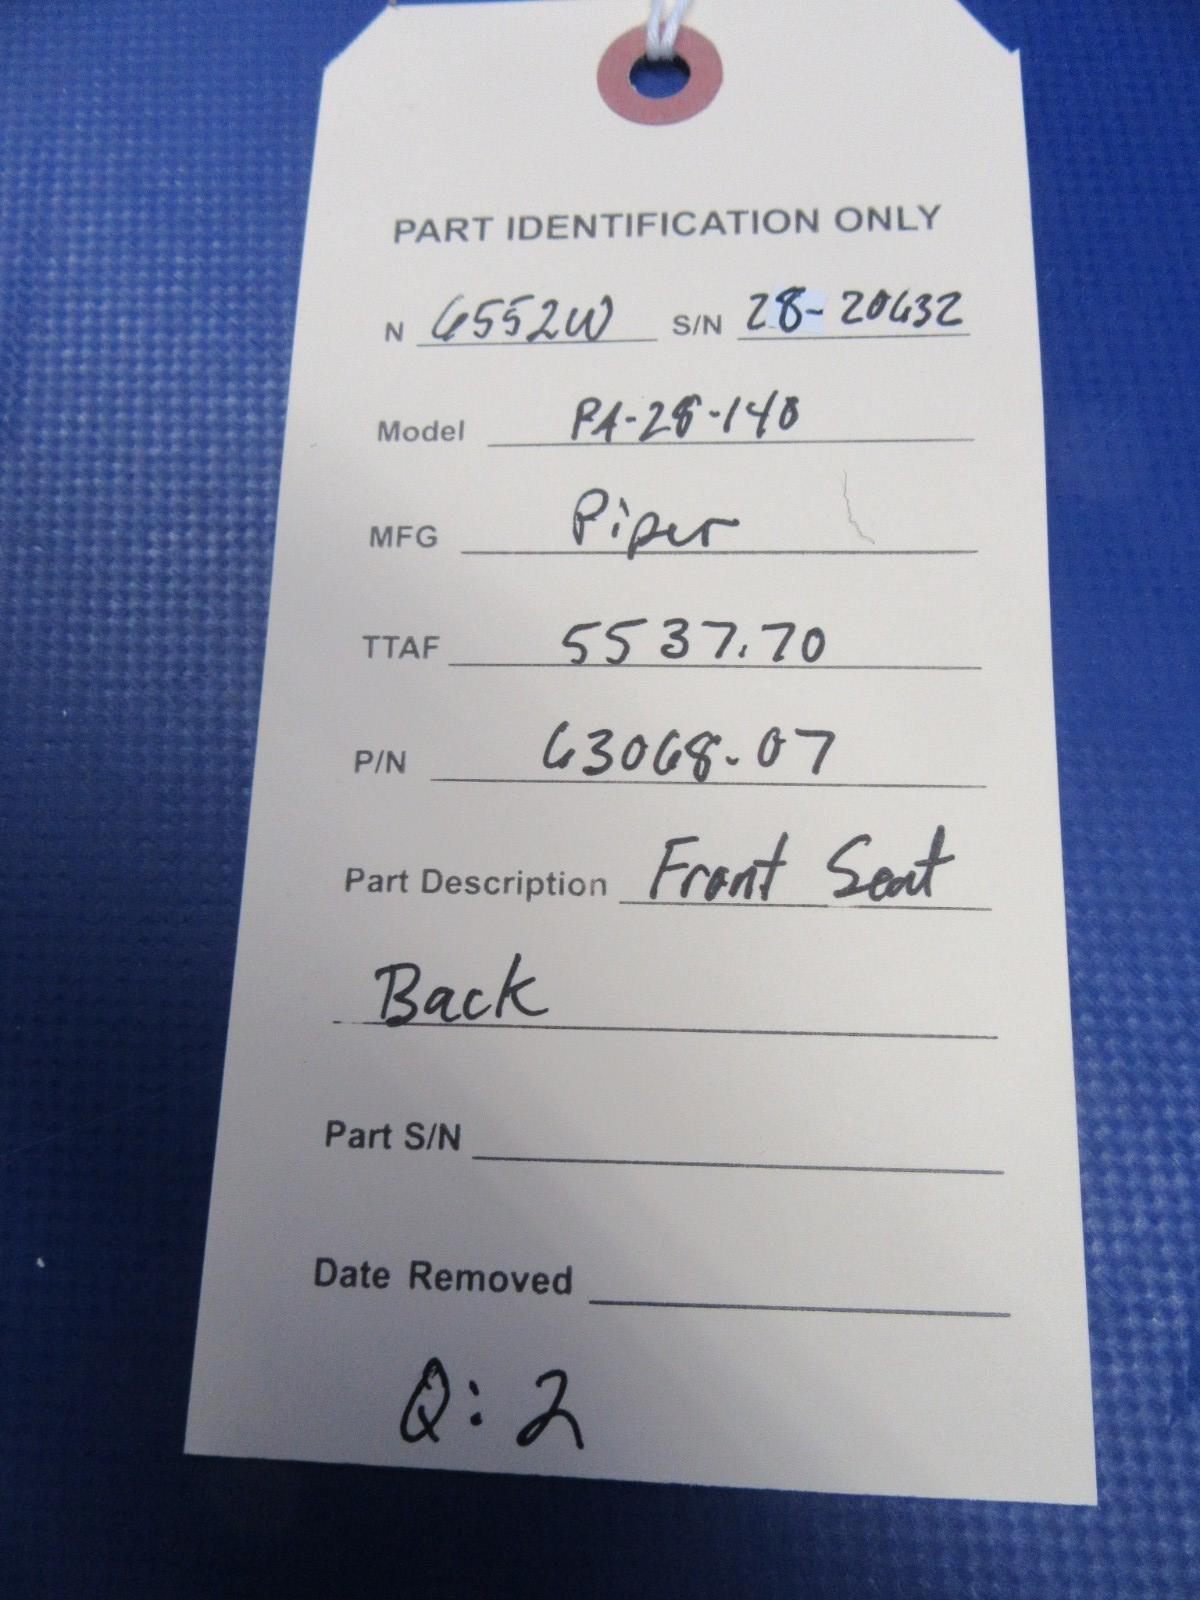 PART IDENTIFICATION ONLY
N 6552W S/N 28-20632
Model PA-28-140
MFG Piper
TTAF 5537.70
P/N 63068-07
Part Description Front Seat
Back
Part S/N
Date Removed
Q: 2